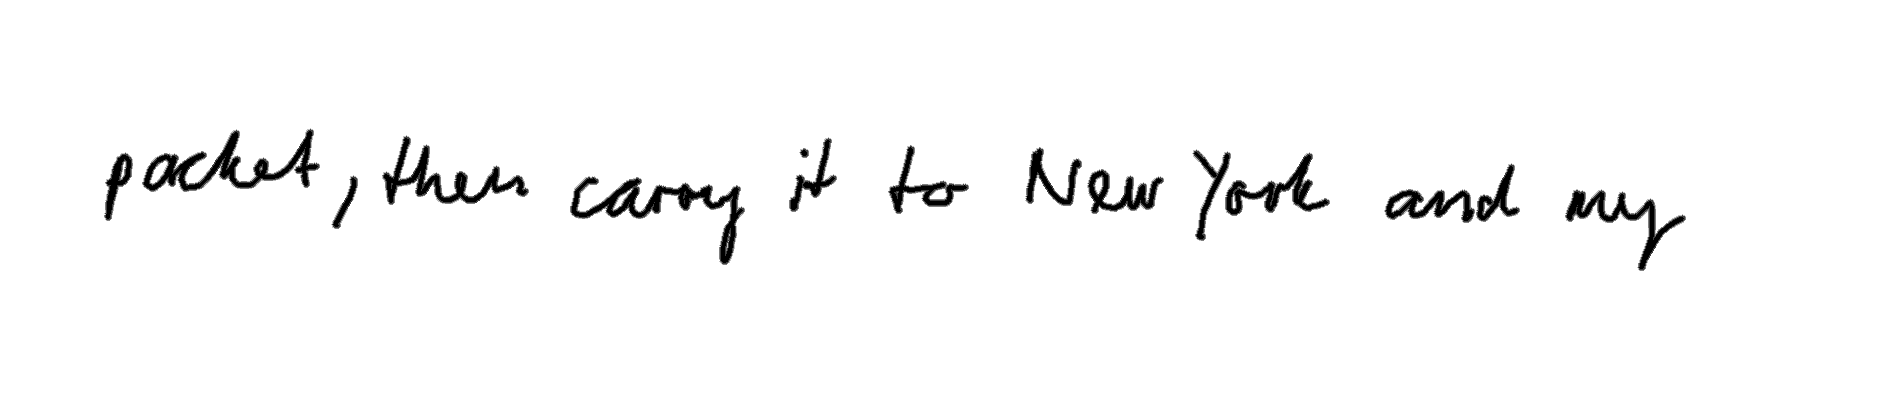 packet, then carry it to New York and my